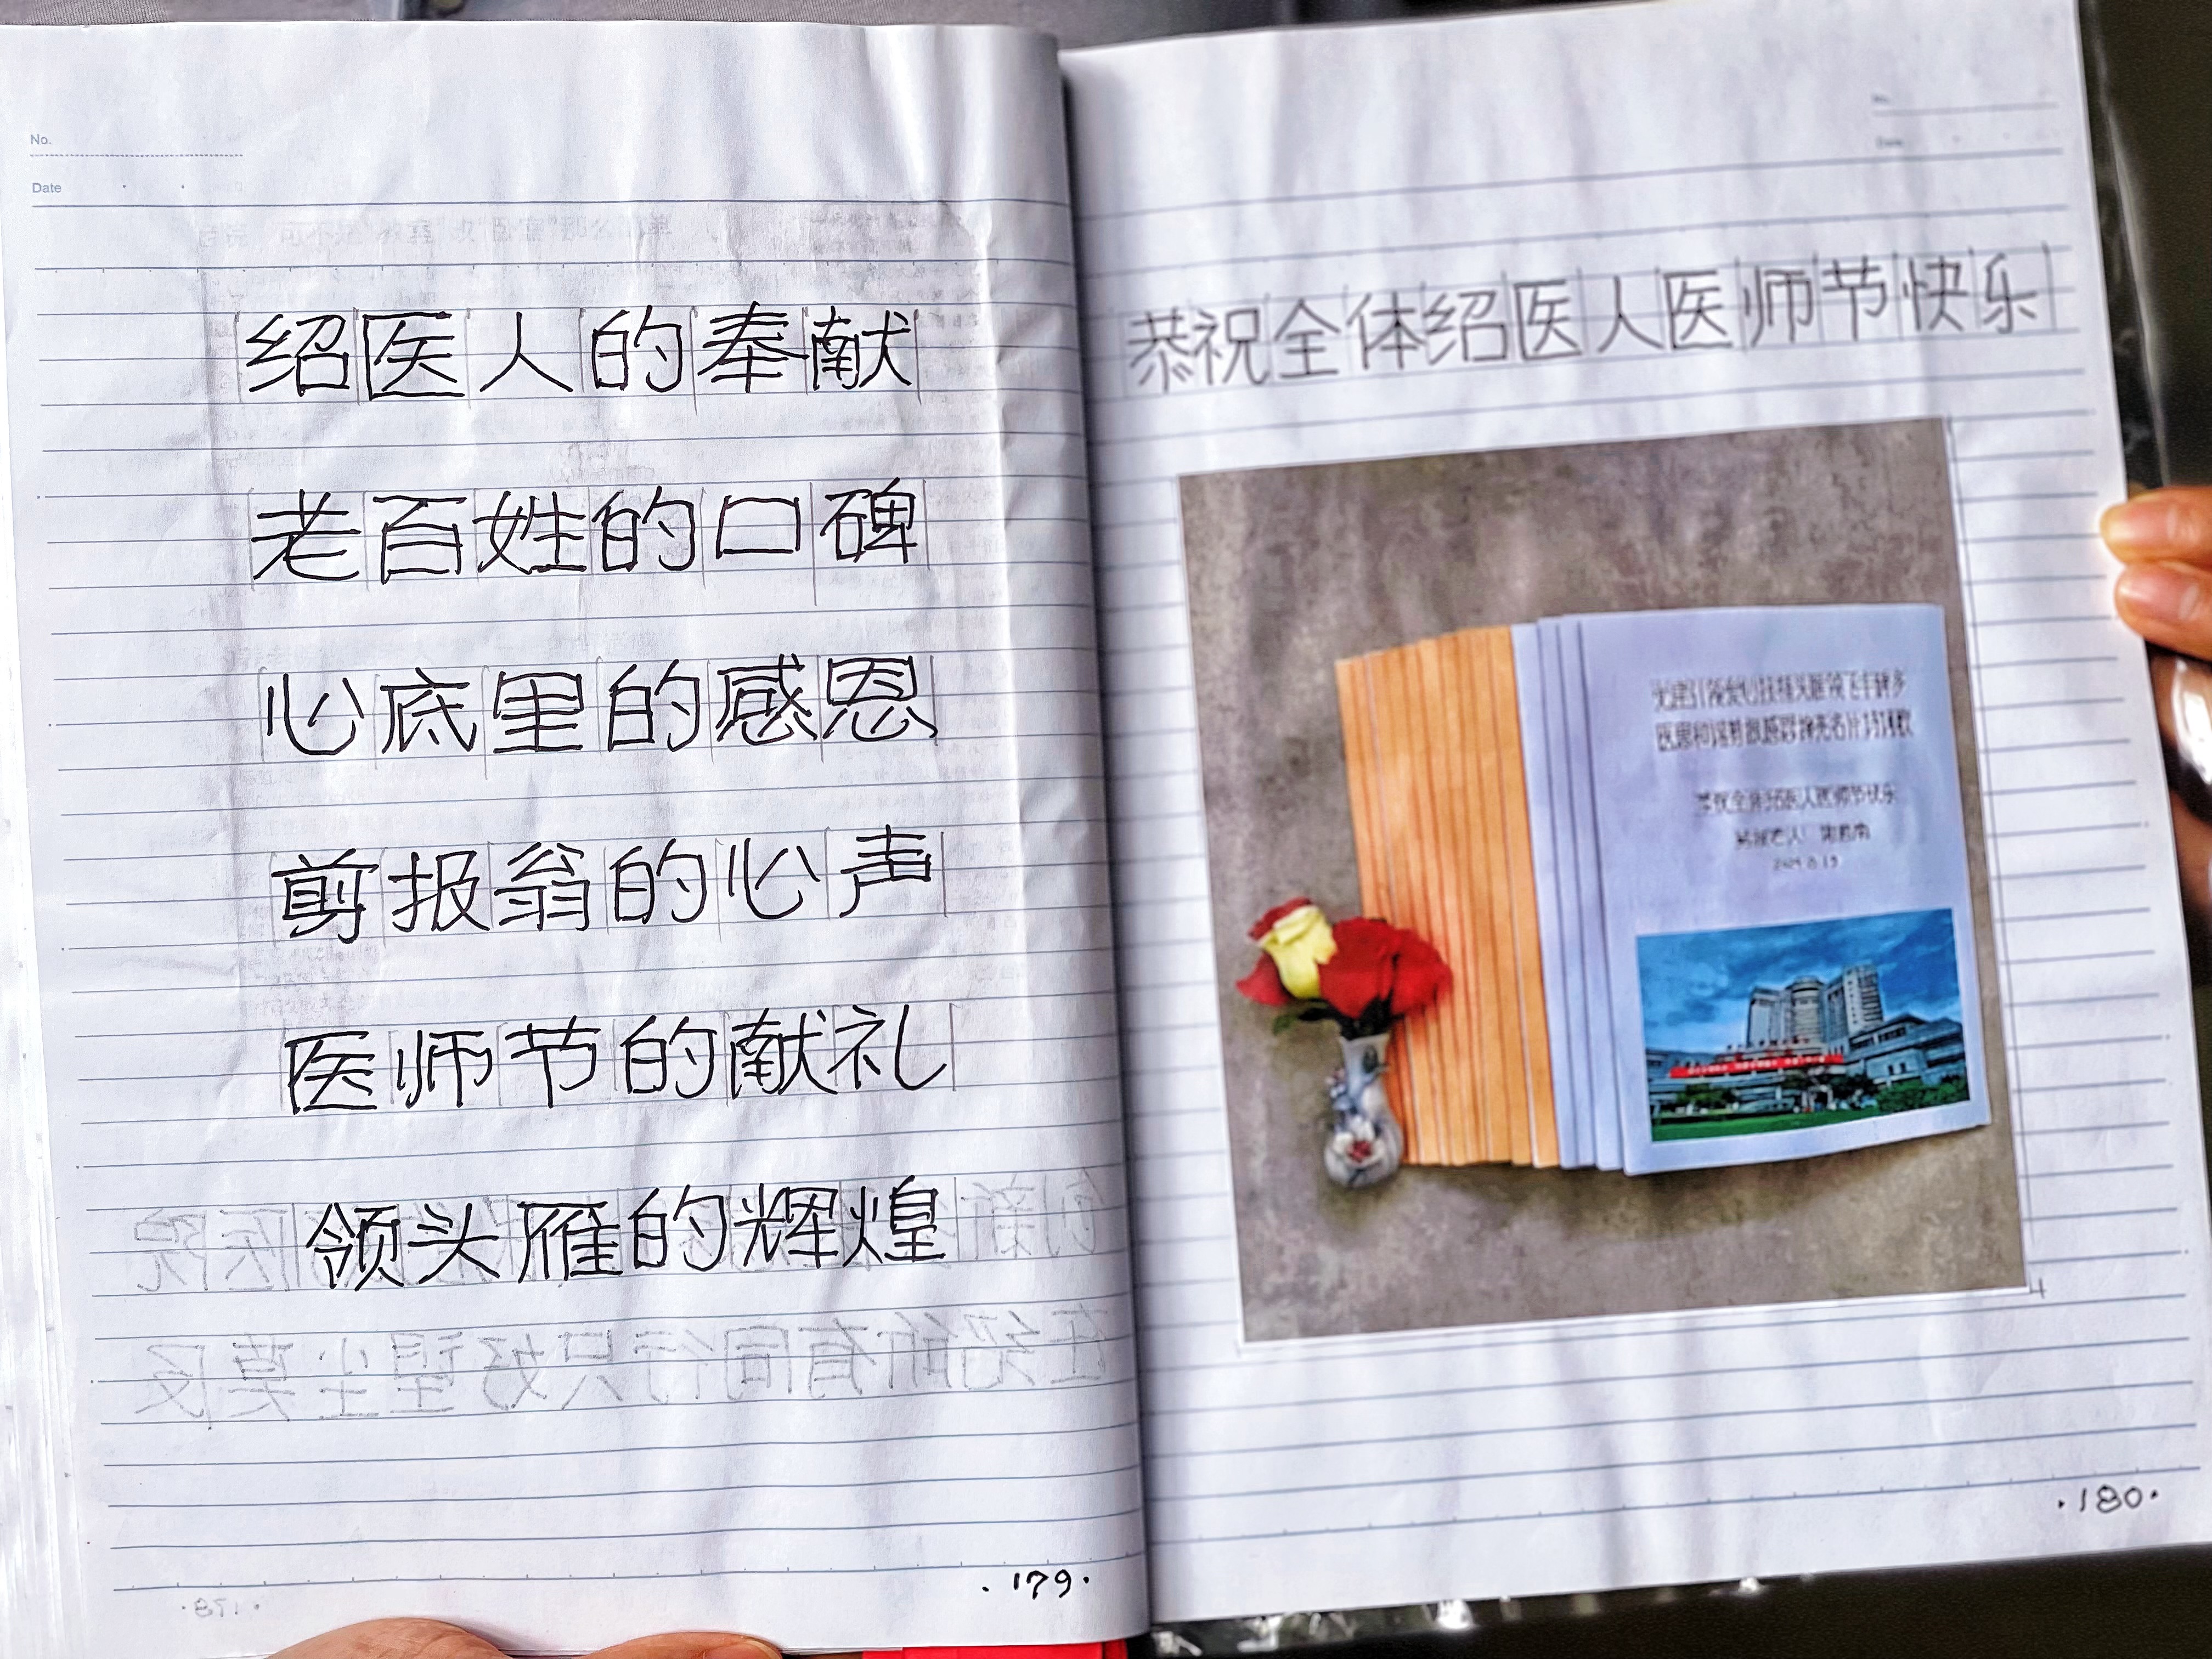 No.
Date
绍医人的奉献
老百姓的口碑
心底里的感恩
剪报翁的心声
医师节的献礼
领头雁的辉煌
·179·
恭祝全体绍医人医师节快乐
恭祝全体绍医人医师节快乐
·180·